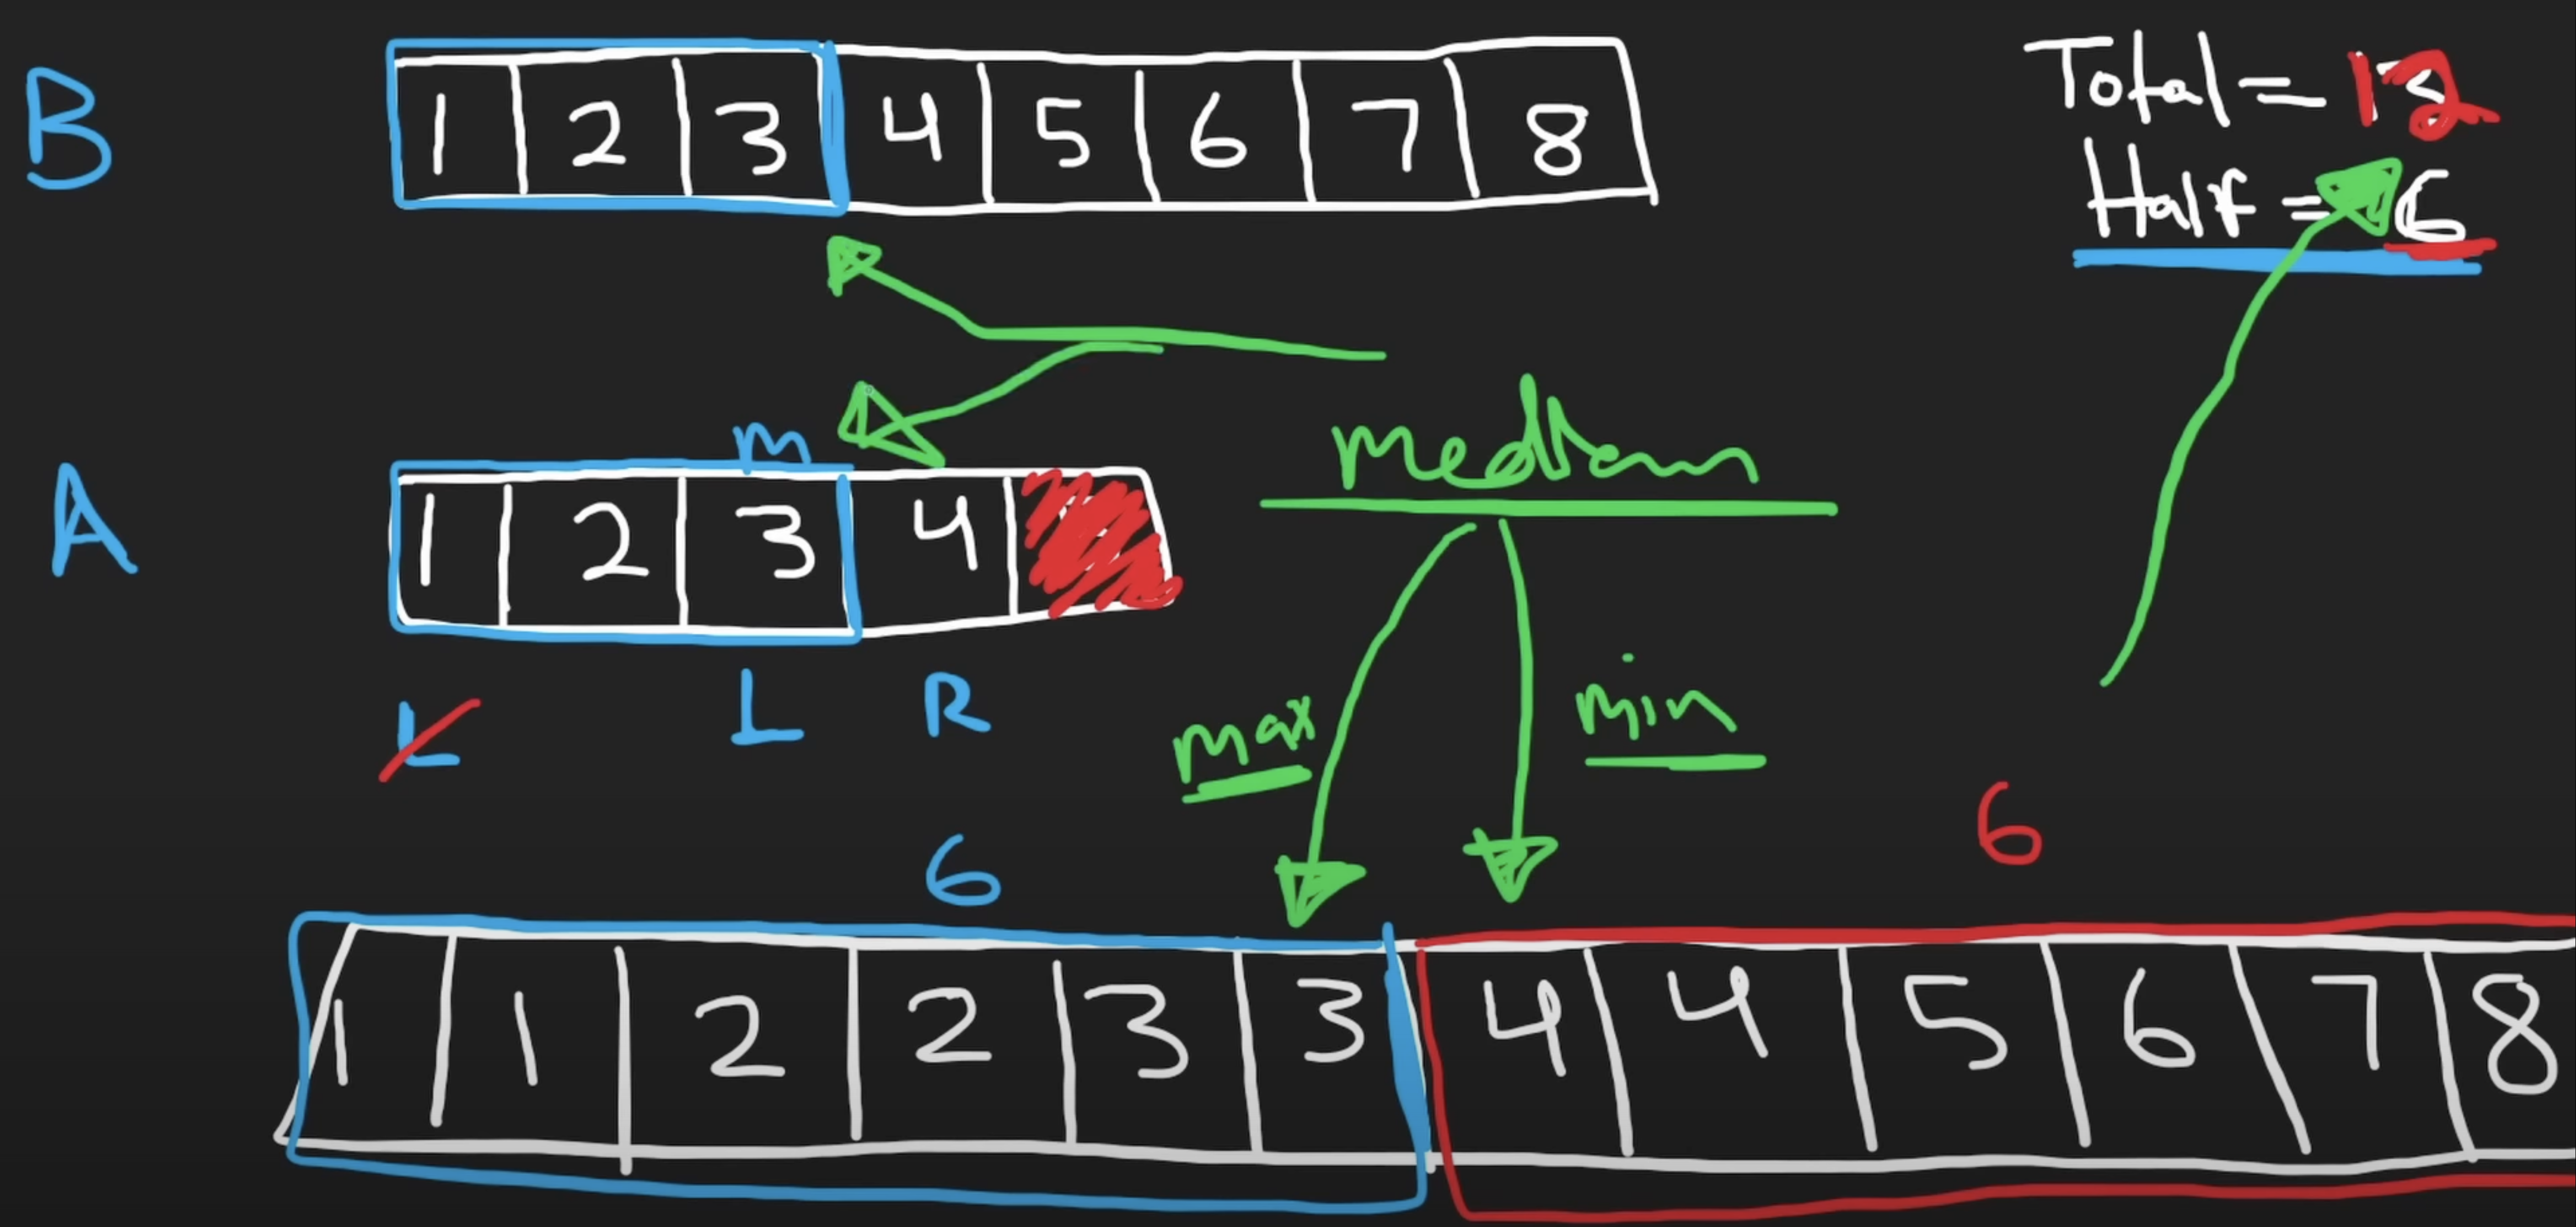 B
1 2 3 4 5 6 7 8
Total = 12
Half = 6
m
A
1 2 3 4
median
L L R
max
min
6
6
1 1 2 2 3 3 4 4 5 6 7 8